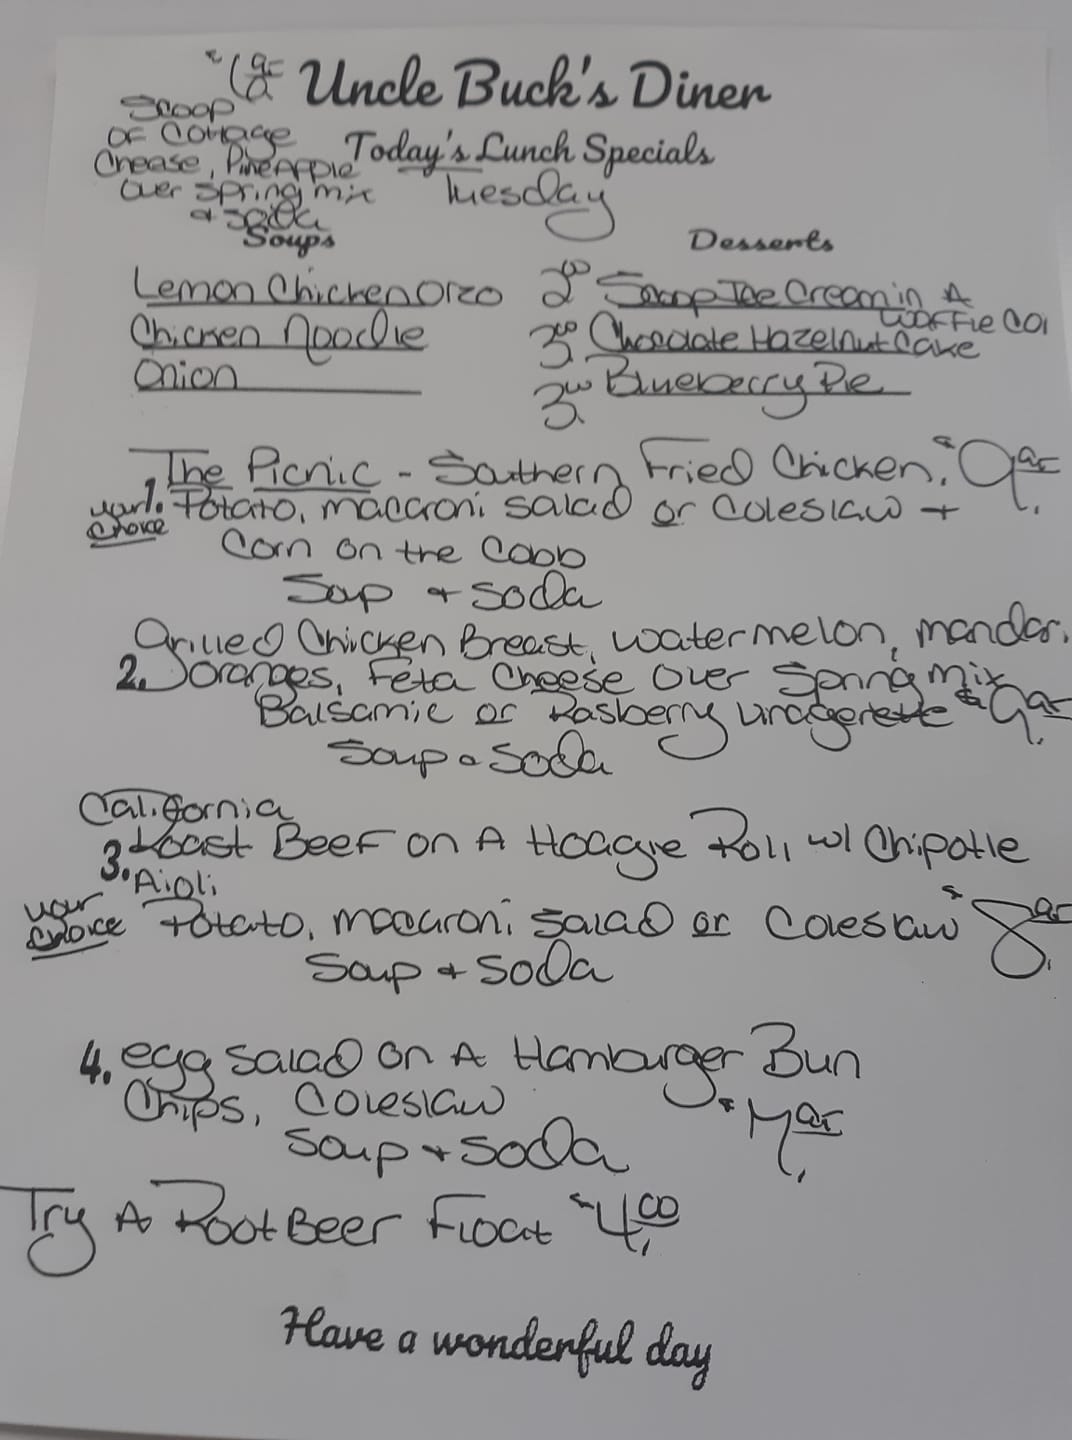 Uncle Buck's Diner
Scoop
OF Cottage
Cheese, PineApple
over spring mix
+ soda
Today's Lunch Specials
Tuesday
Soups
Lemon Chicken Orzo
Chicken Noodle
Onion
Desserts
2.00 Scoop Ice Cream in A
Waffle Co
3.00 Chocolate Hazelnut Cake
3.00 Blueberry Pie
The Picnic - Southern Fried Chicken, $9.95
your choice 1. Potato, macaroni salad or Coleslaw +
Corn on the Cobb
Soup + Soda
Grilled Chicken Breast, watermelon, mandar.
2. oranges, Feta Cheese over Spring mix
Balsamic or Rasberry Vinagerette $9.95
Soup + Soda
California
3. Roast Beef on A Hoagie Roll w/ Chipotle
Aioli
your choice Potato, macaroni salad or Coleslaw $8.95
Soup + Soda
4. egg salad on A Hamburger Bun
Chips, Coleslaw
$7.95
Soup + Soda
Try A Root Beer Float $4.00
Have a wonderful day